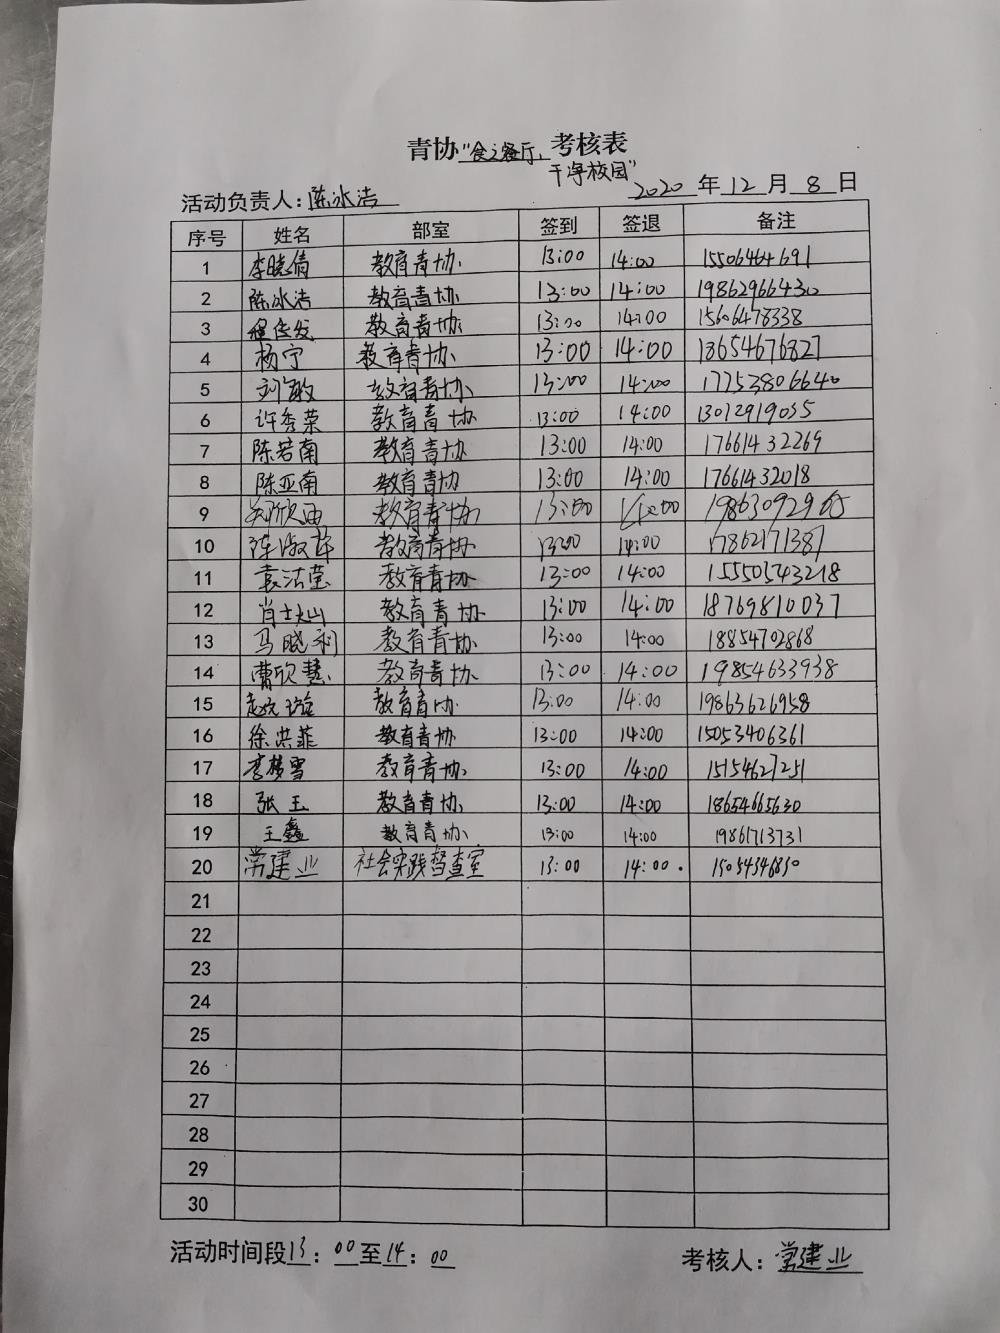 青协"食之餐厅,考核表
干净校园"
活动负责人:陈冰洁 2020年12月8日
序号 姓名 部室 签到 签退 备注
1 李晓倩 教育青协 13:00 14:00 15506464691
2 陈冰洁 教育青协 13:00 14:00 19862966430
3 教育青协 13:00 14:00 15606478338
4 杨宁 教育青协 13:00 14:00 18654676827
5 刘敏 教育青协 13:00 14:00 17753806640
6 许秀荣 教育青协 13:00 14:00 13012919035
7 陈若南 教育青协 13:00 14:00 17661432269
8 陈亚南 教育青协 13:00 14:00 17661432018
9 教育青协 13:00 14:00
10 陈淑萍 教育青协 13:00 14:00 17862171387
11 袁洁莹 教育青协 13:00 14:00 15550543218
12 教育青协 13:00 14:00 18769810037
13 马晓利 教育青协 13:00 14:00 18854702868
14 曹欣慧 教育青协 13:00 14:00 19854633938
15 教育青协 13:00 14:00 19863626958
16 徐洪菲 教育青协 13:00 14:00 15053406361
17 李梦雪 教育青协 13:00 14:00 15154627251
18 张玉 教育青协 13:00 14:00 18654665630
19 王鑫 教育青协 13:00 14:00 19861713731
20 常建业 社会实践督查室 13:00 14:00. 15054546850
21
22
23
24
25
26
27
28
29
30
活动时间段13:00至14:00 考核人:常建业